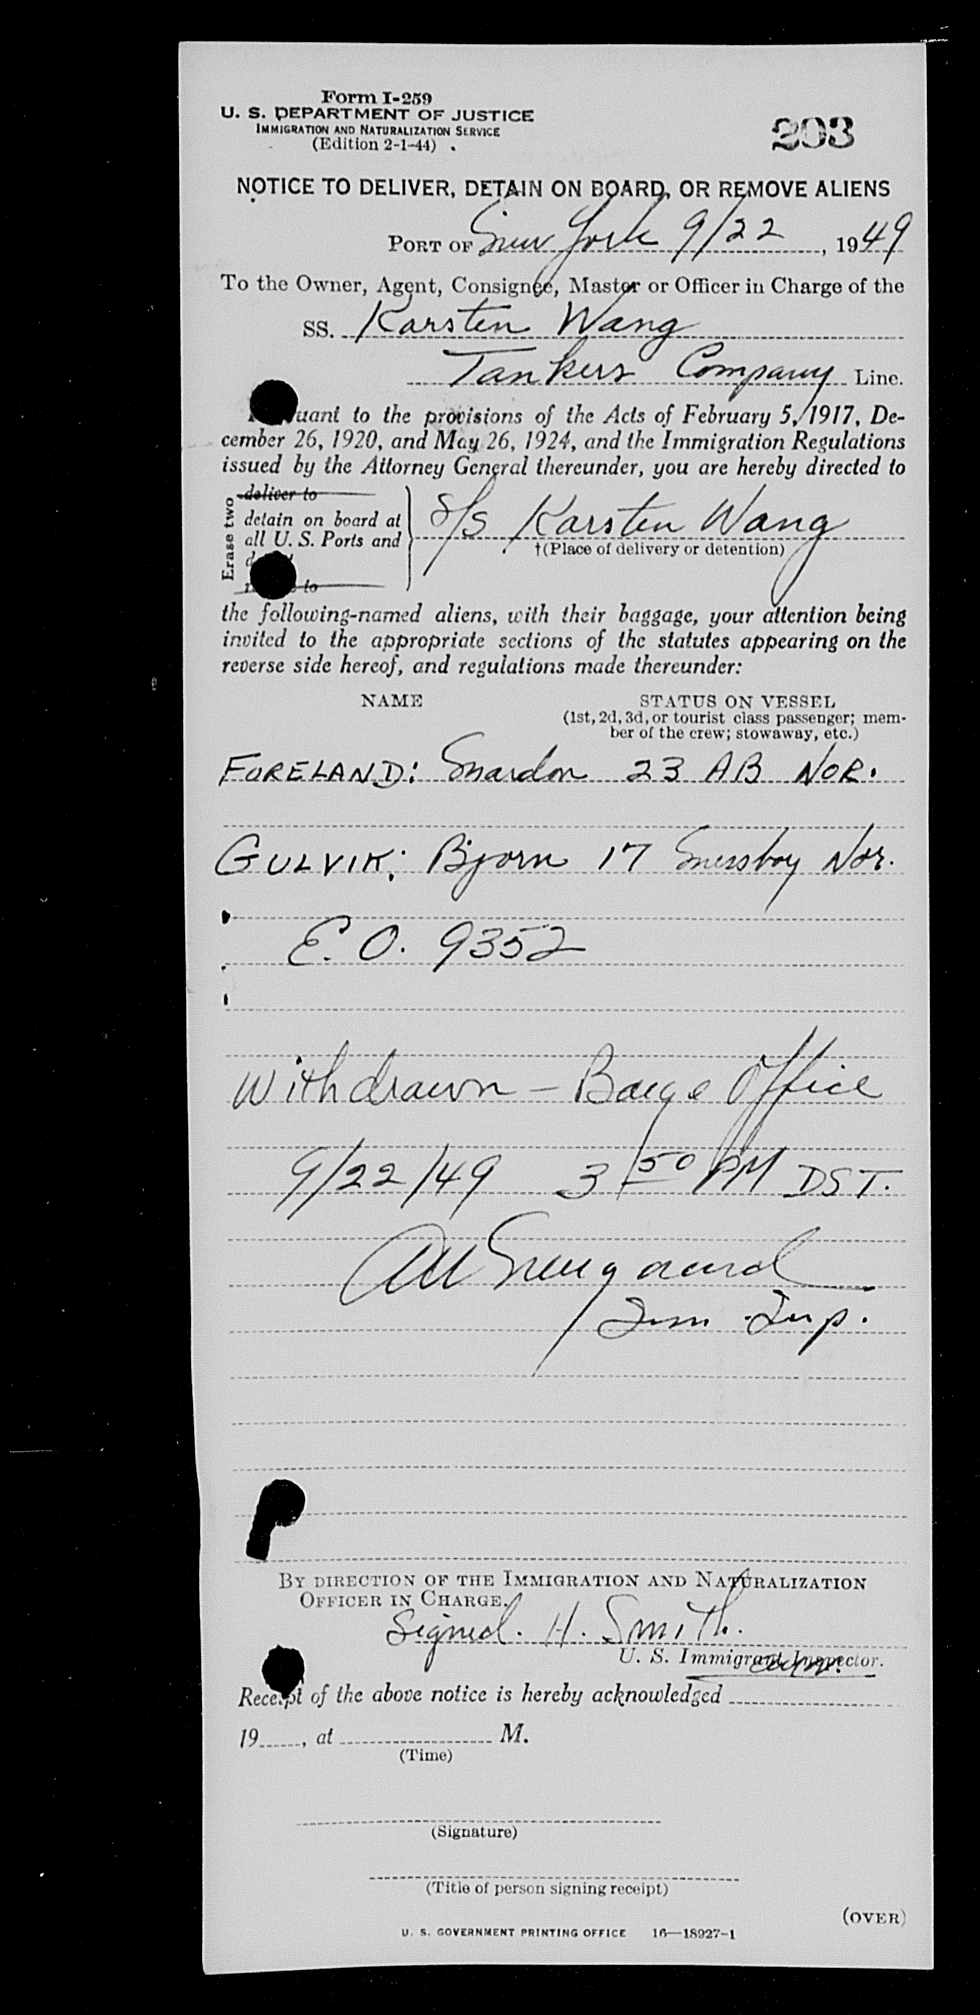 Form I-259
U. S. DEPARTMENT OF JUSTICE
IMMIGRATION AND NATURALIZATION SERVICE
(Edition 2-1-44)
203
NOTICE TO DELIVER, DETAIN ON BOARD, OR REMOVE ALIENS
PORT OF New York 9/22, 1949
To the Owner, Agent, Consignee, Master or Officer in Charge of the
SS. Karsten Wang
Tankers Company Line.
uant to the provisions of the Acts of February 5, 1917, De-
cember 26, 1920, and May 26, 1924, and the Immigration Regulations
issued by the Attorney General thereunder, you are hereby directed to
Erase two
deliver to
detain on board at
all U. S. Ports and
to
S/S Karsten Wang
†(Place of delivery or detention)
the following-named aliens, with their baggage, your attention being
invited to the appropriate sections of the statutes appearing on the
reverse side hereof, and regulations made thereunder:
NAME STATUS ON VESSEL
(1st, 2d, 3d, or tourist class passenger; mem-
ber of the crew; stowaway, etc.)
FORELAND: 23 AB NOR.
GULVIK: Bjorn 17 Messboy Nor.
E.O. 9352
Withdrawn - Barge Office
9/22/49 3 50 PM DST.
Imm. Insp.
BY DIRECTION OF THE IMMIGRATION AND NATURALIZATION
OFFICER IN CHARGE.
Signed. H. Smith.
U. S. Immigrant Inspector.
Receipt of the above notice is hereby acknowledged
19, at M.
(Time)
(Signature)
(Title of person signing receipt)
(OVER)
U. S. GOVERNMENT PRINTING OFFICE 16—18927-1